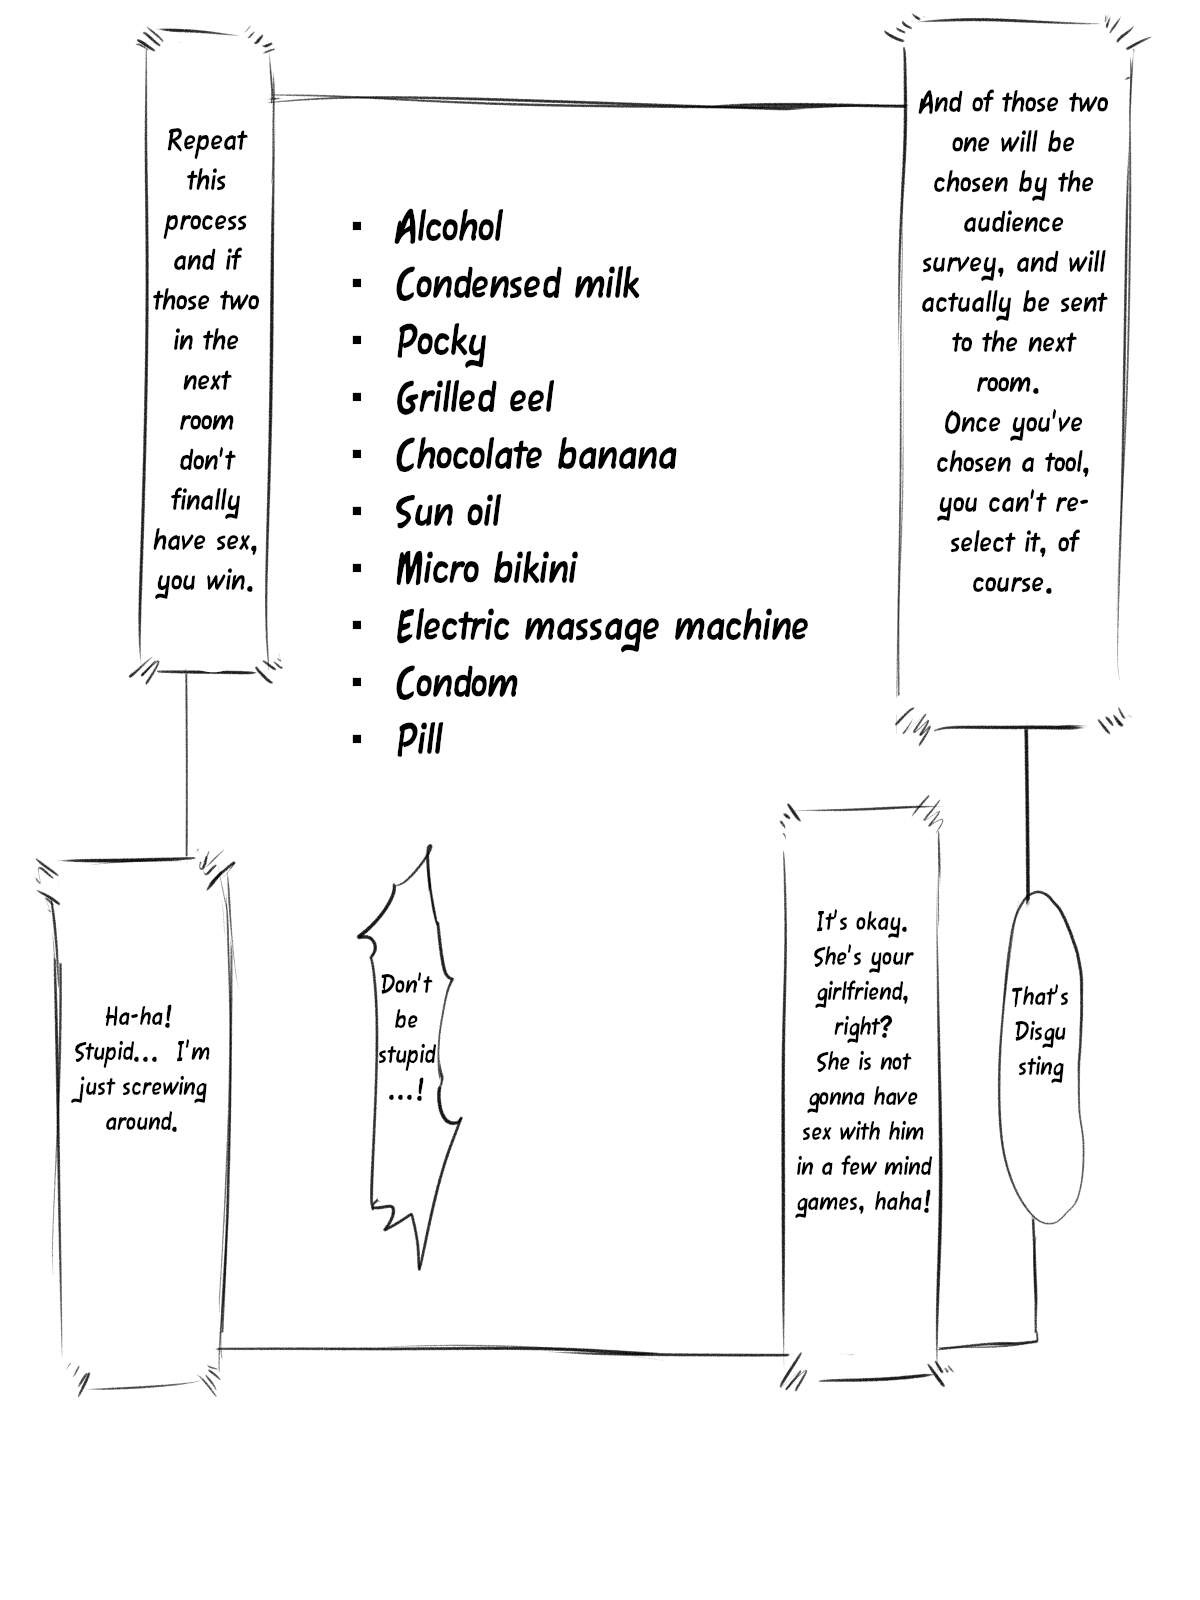 And of those two
one will be
chosen by the
audience
survey, and will
actually be sent
to the next
room.
Once you've
chosen a tool,
you can't re-
select it, of
course.
▪ Alcohol
▪ Condensed milk
▪ Pocky
▪ Grilled eel
▪ Chocolate banana
▪ Sun oil
▪ Micro bikini
▪ Electric massage machine
▪ Condom
▪ Pill
Repeat
this
process
and if
those two
in the
next
room
don't
finally
have sex,
you win.
That's
Disgu
sting
It's okay.
She's your
girlfriend,
right?
She is not
gonna have
sex with him
in a few mind
games, haha!
Don't
be
stupid
...!
Ha-ha!
Stupid... I'm
just screwing
around.